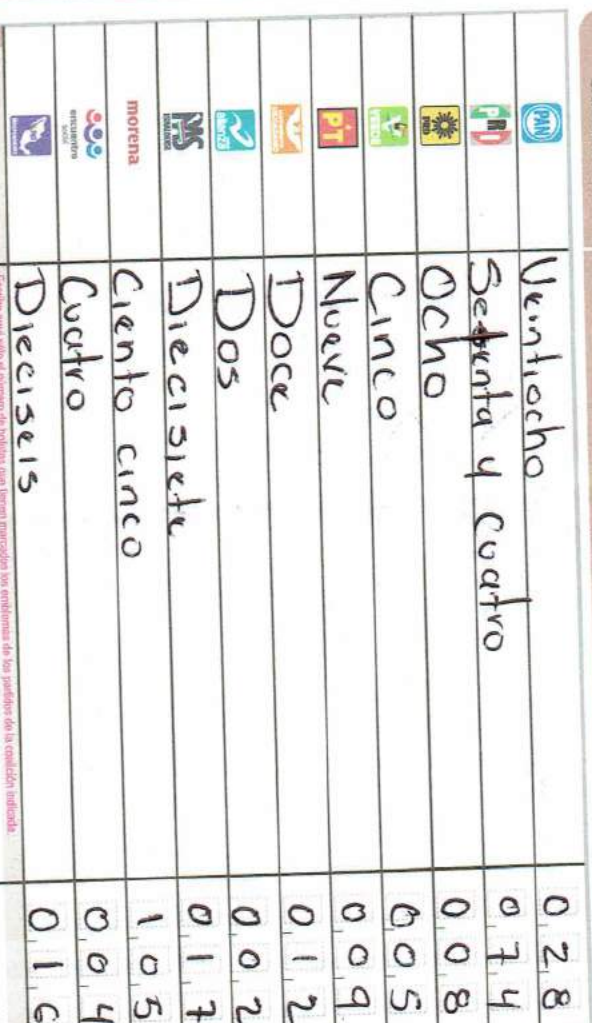 PAN Veintiocho 028
PRI Setenta y Cuatro 074
PRD Ocho 008
VERDE Cinco 005
PT Nueve 009
Doce 012
alianza Dos 002
Diecisiete 017
morena Ciento cinco 105
encuentro social Cuatro 004
Dieciseis 016
Escriba aquí sólo el número de boletas que tienen marcados los emblemas de los partidos de la coalición indicada.